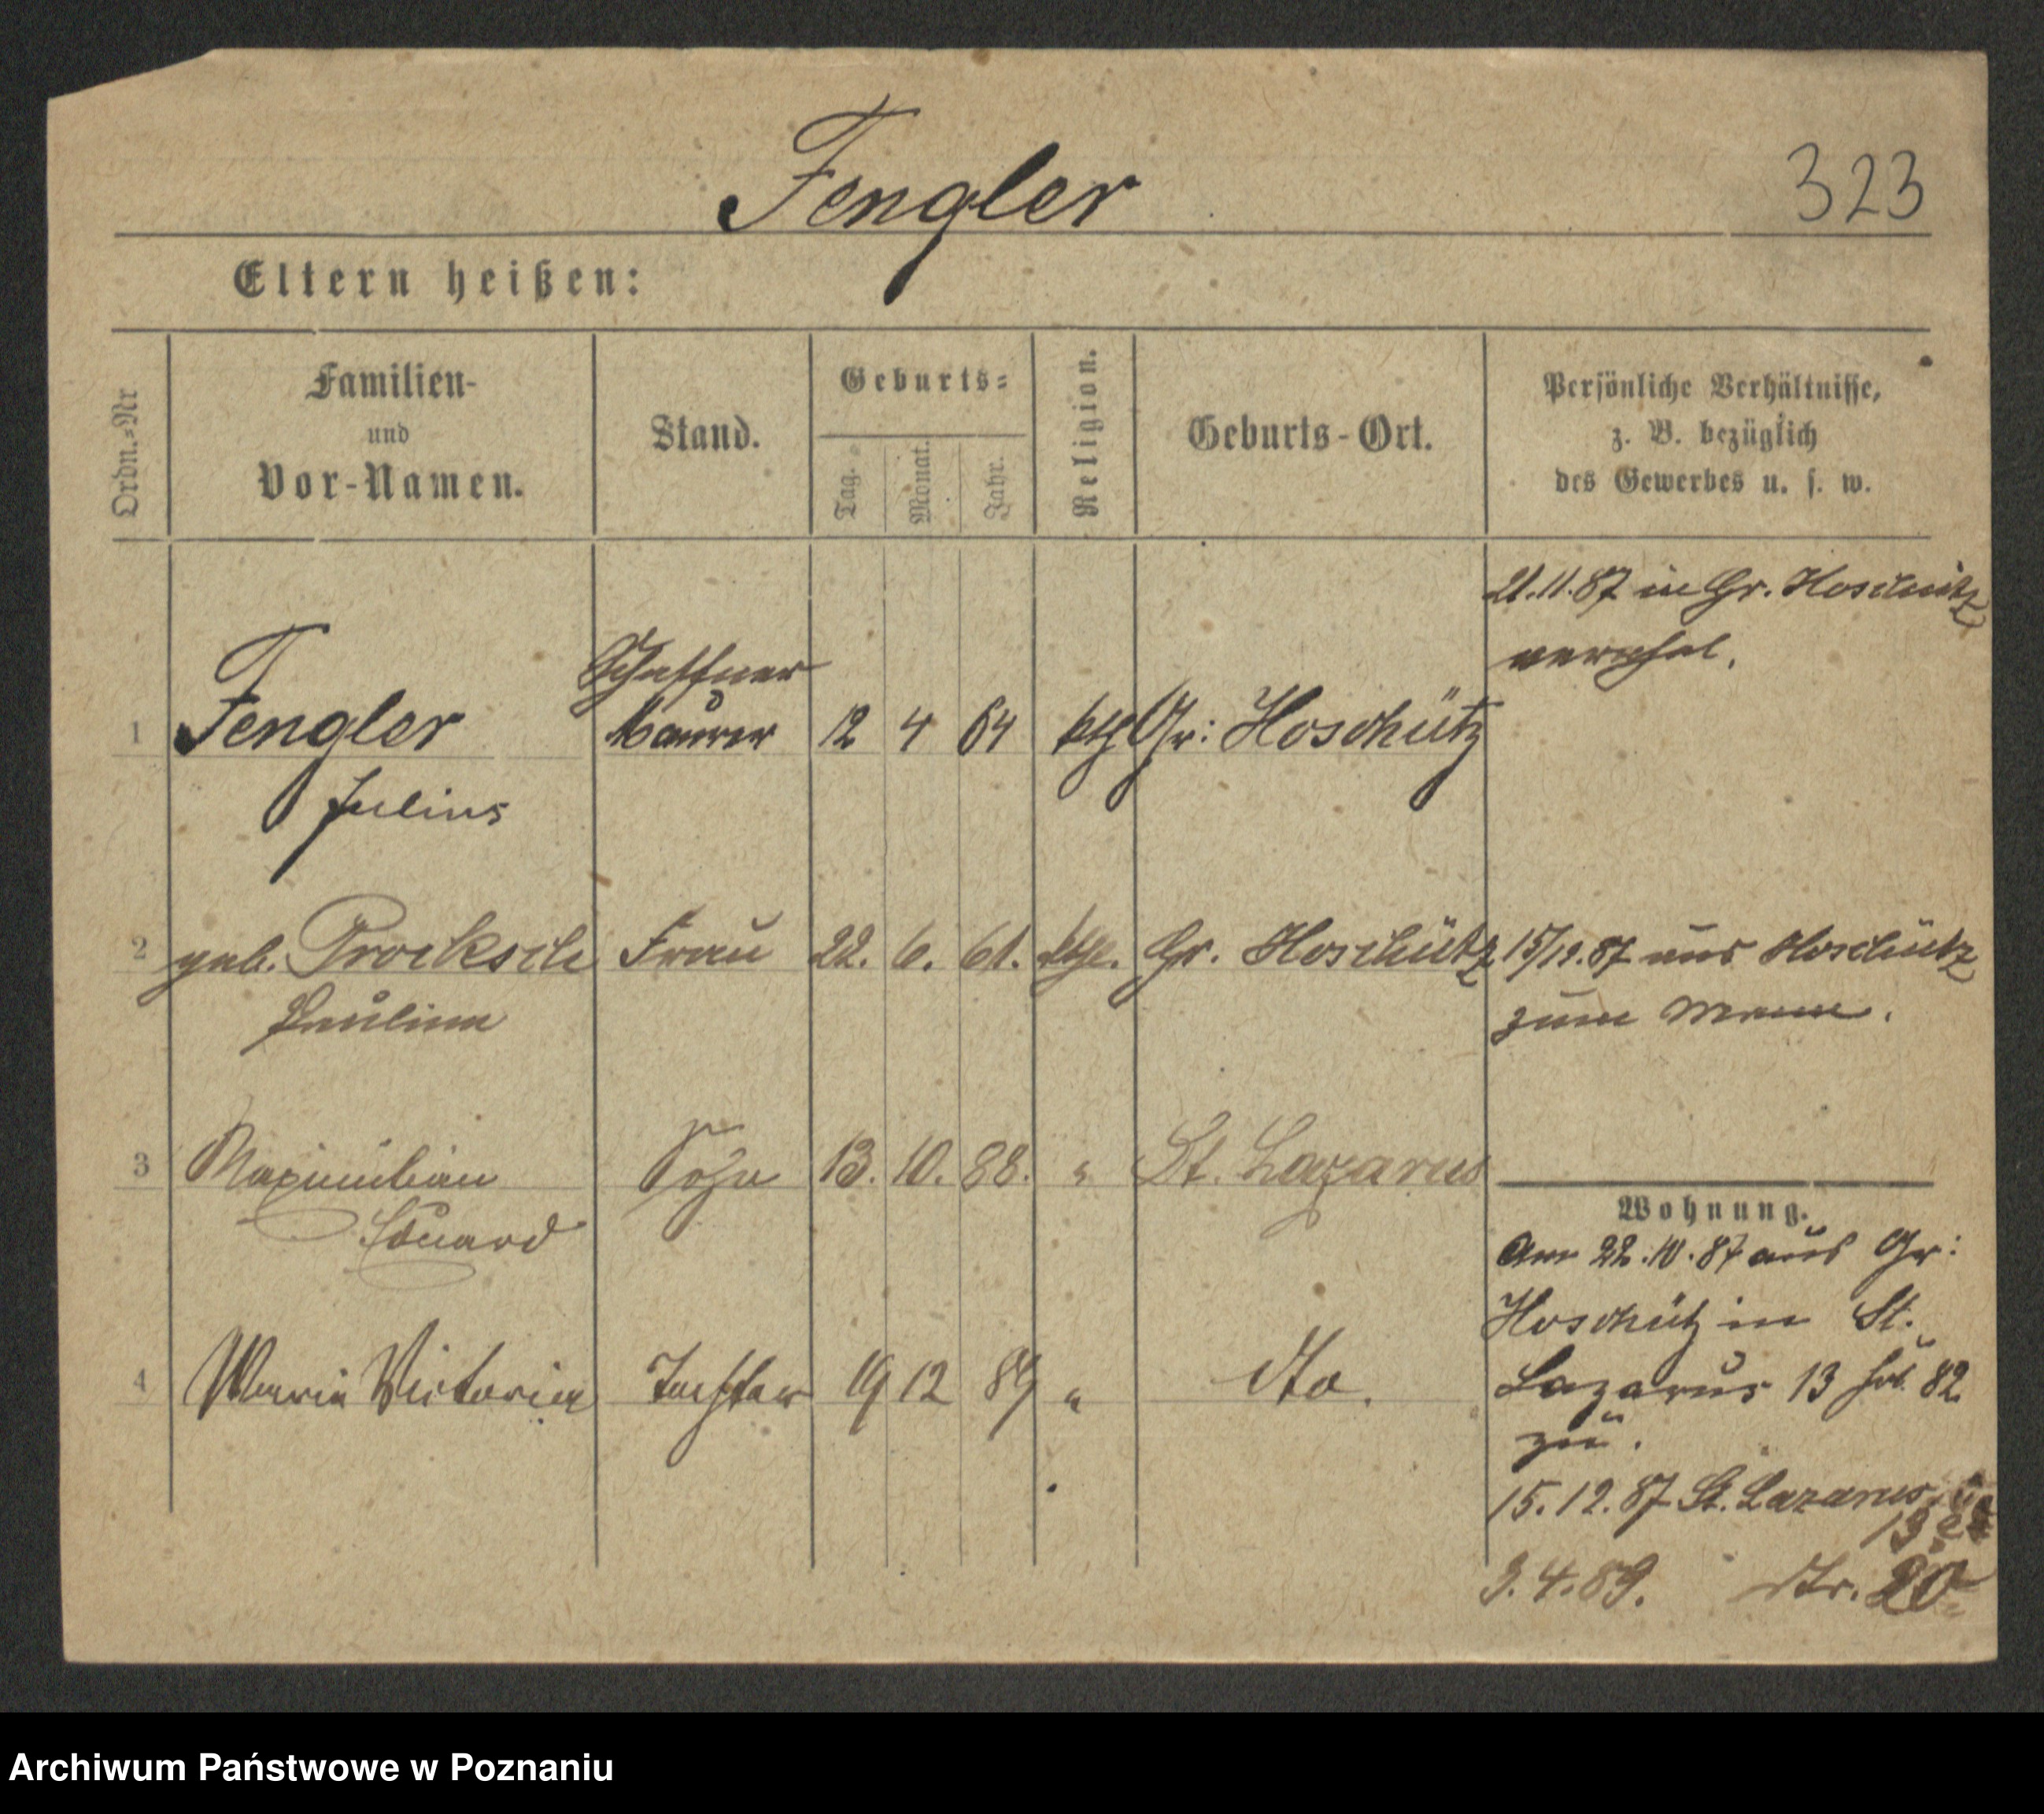 323
Fengler
Eltern heißen:
Ordn.-Nr
Familien-
und
Vor-Namen.
Stand.
Geburts-
Tag.
Monat.
Jahr.
Religion.
Geburts-Ort.
Persönliche Verhältnisse,
z. B. bezüglich
des Gewerbes u. s. w.
21.11.87 in Gr. Hoschütz
verehel.
Schaffner
1 Fengler Maurer 12 4 64 ktl Gr: Hoschütz
Julius
2 geb. Procksch Frau 22. 6. 61. ktl. Gr. Hoschütz 15/12.87 aus Hoschütz
Pauline zum Manne.
3 Maximilian Sohn 13. 10. 88. " St. Lazarus
Eduard
Wohnung.
Am 22.10.87 aus Gr:
Hoschütz in St.
4 Maria Victoria Tochter 19 12 89 " dto.
Lazarus 13 bei 82
zu.
15.12.87 St. Lazarus
13
3.4.89. Nr. 20
Archiwum Państwowe w Poznaniu